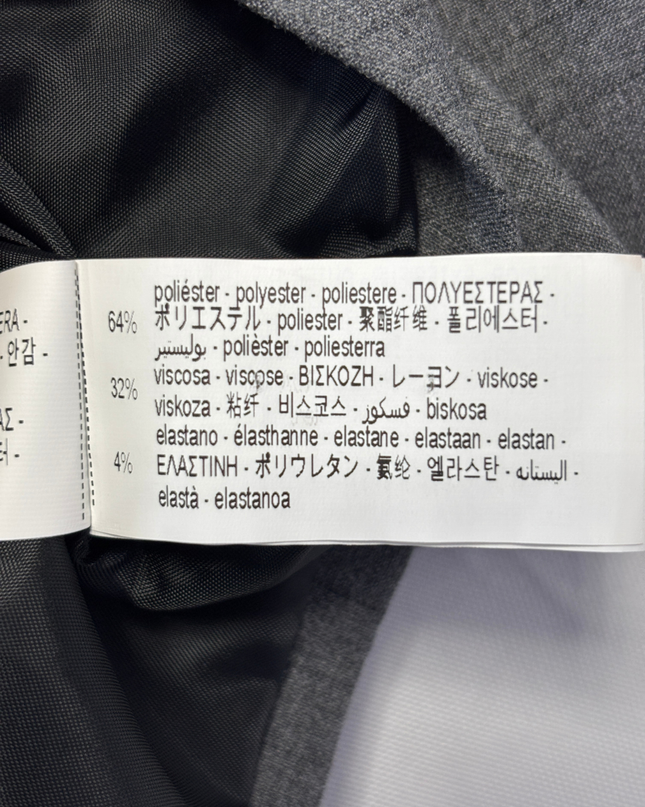 ERA -
- 안감 -
ΑΣ -
터 -
64%
poliéster - polyester - poliestere - ΠΟΛΥΕΣΤΕΡΑΣ -
ポリエステル - poliester - 聚酯纤维 - 폴리에스터 -
بوليستير - polièster - poliesterra
32%
viscosa - viscose - ΒΙΣΚΟΖΗ - レーヨン - viskose -
viskoza - 粘纤 - 비스코스 - فسكوز - biskosa
4%
elastano - élasthanne - elastane - elastaan - elastan -
ΕΛΑΣΤΙΝΗ - ポリウレタン - 氨纶 - 엘라스탄 - اليستانه -
elastà - elastanoa